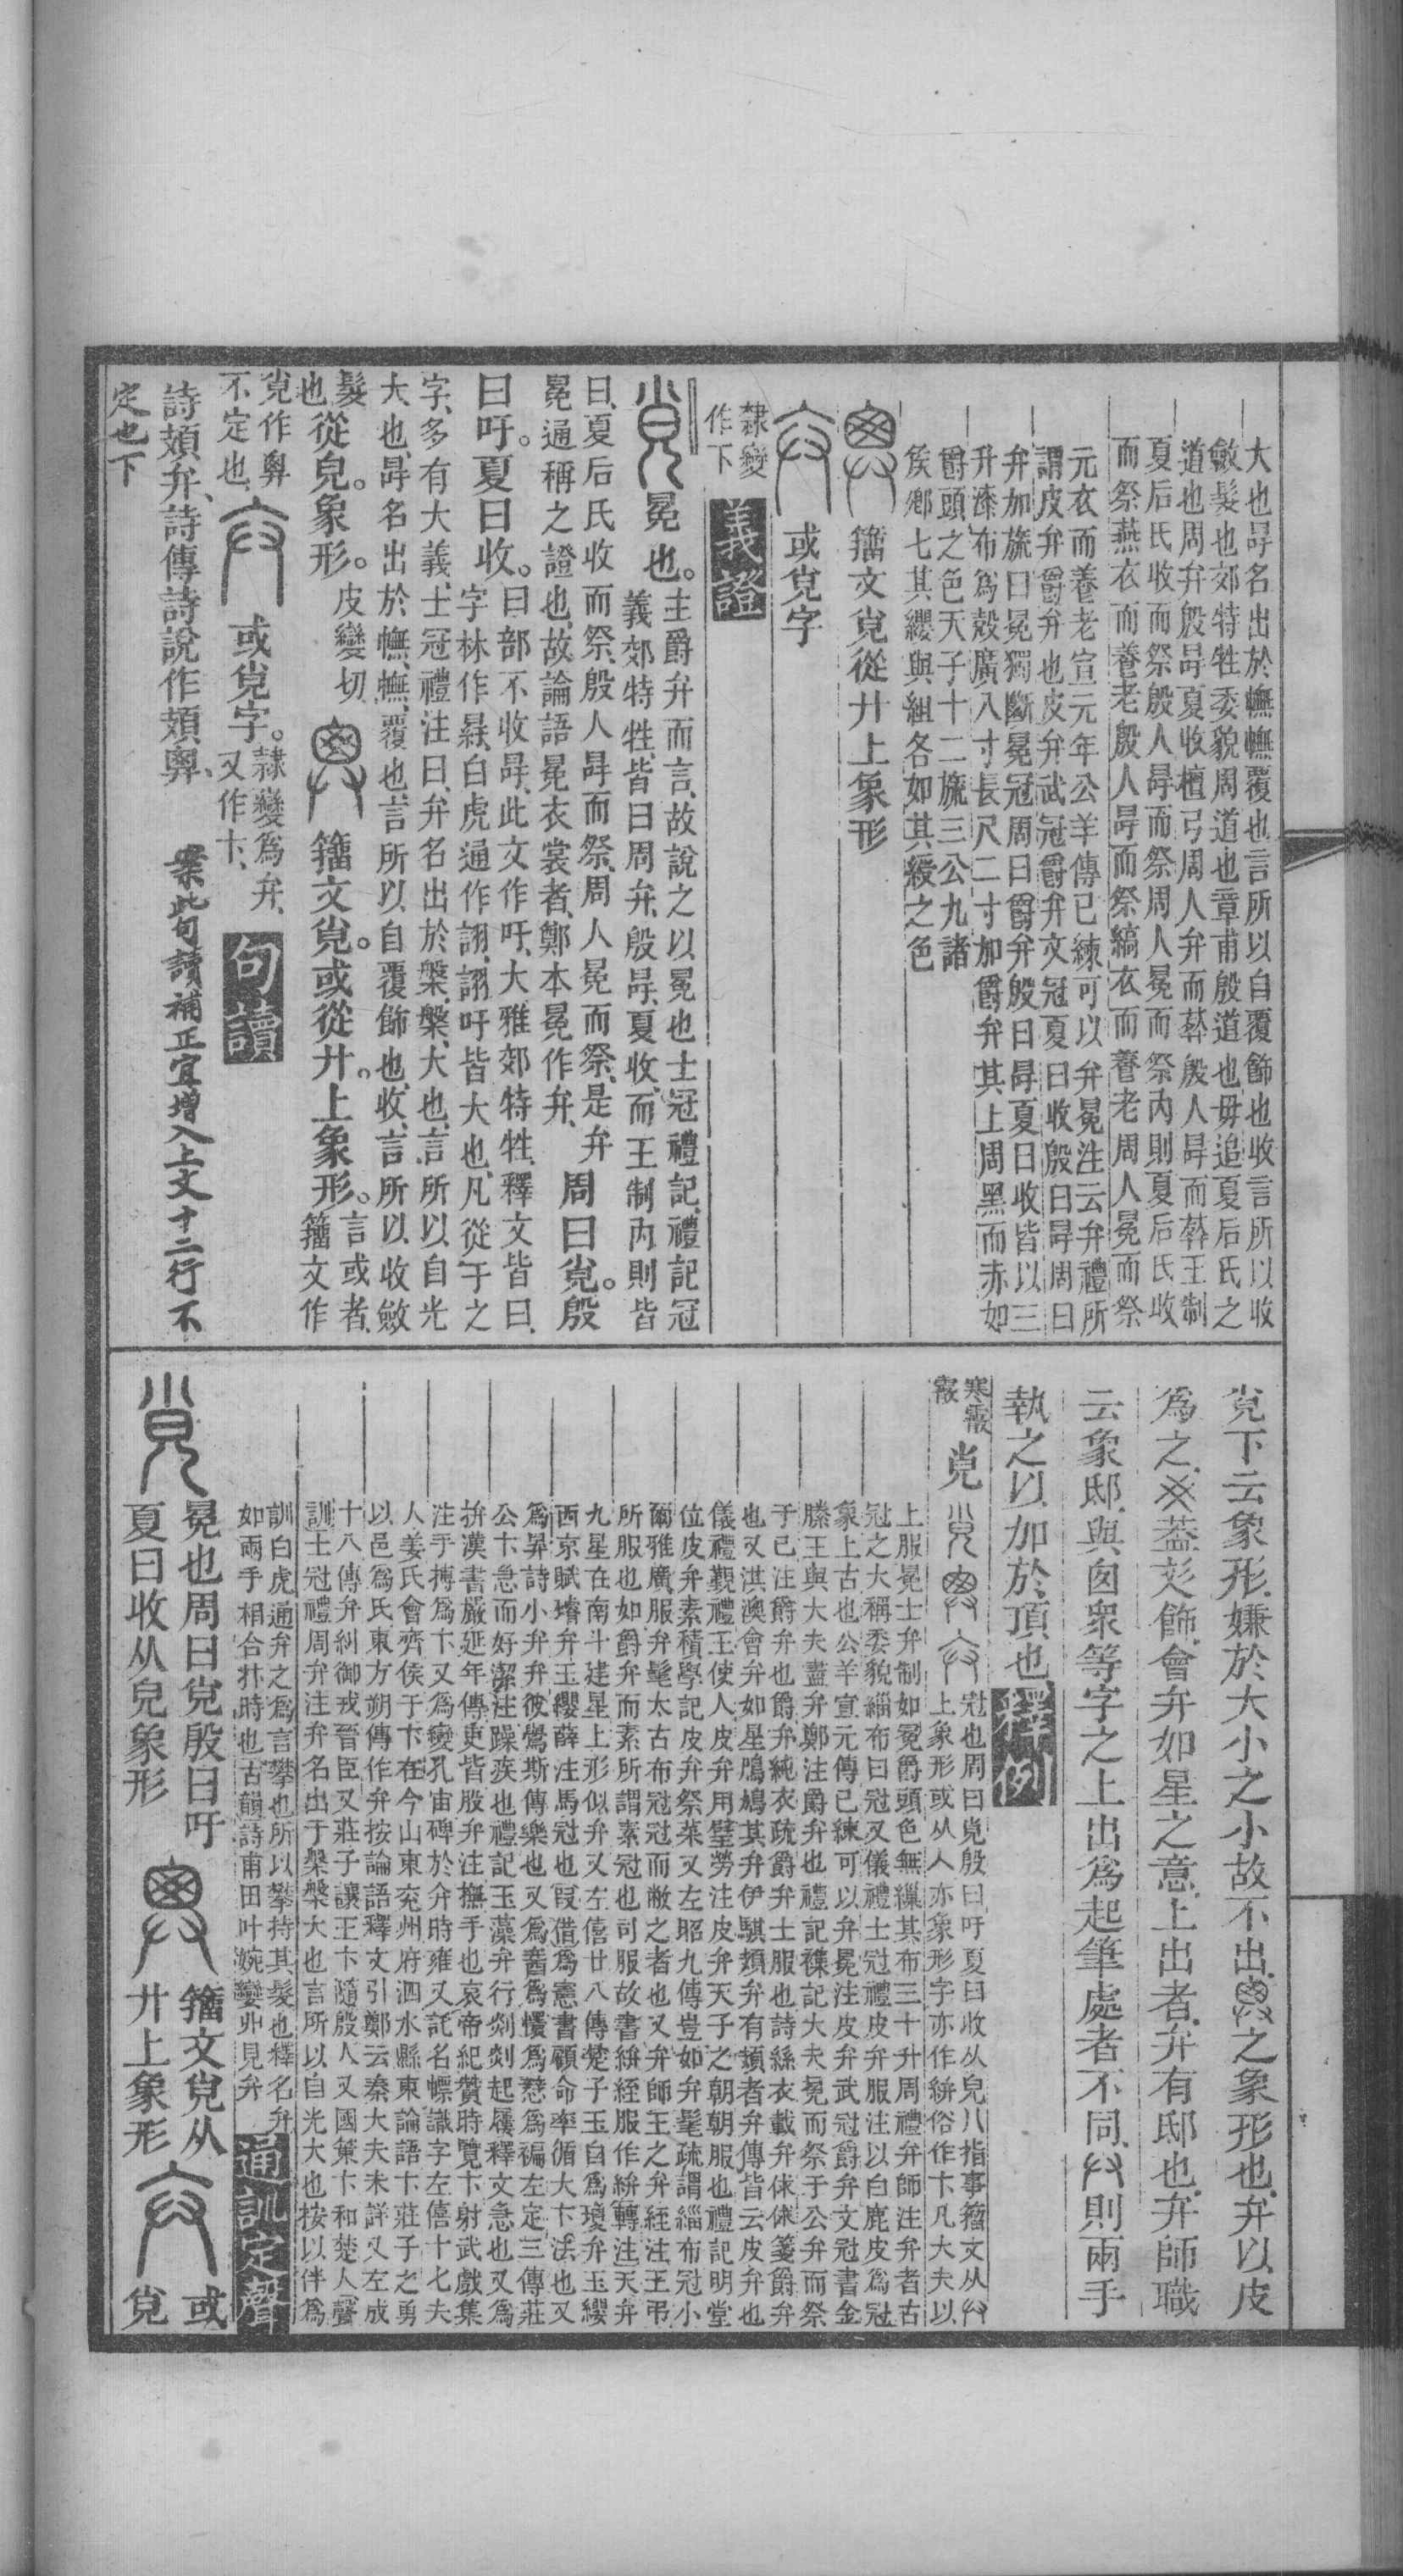 大也冔名出於幠幠覆也言所以自覆飾也收言所以收
斂髮也郊特牲委貌周道也章甫殷道也毋追夏后氏之
道也周弁殷冔夏收檀弓周人弁而葬殷人冔而葬王制
夏后氏收而祭殷人冔而祭周人冕而祭內則夏后氏收
而祭燕衣而養老殷人冔而祭縞衣而養老周人冕而祭
元衣而養老宣元年公羊傳已練可以弁冕注云弁禮所
謂皮弁爵弁也皮弁武冠爵弁文冠夏曰收殷曰冔周曰
弁加旒曰冕獨斷冕冠周曰爵弁殷曰冔夏曰收皆以三
升漆布為殼廣八寸長尺二寸加爵弁其上周黑而赤如
爵頭之色天子十二旒三公九諸
侯鄉七其纓與組各如其綬之色
籒文覍從廾上象形
或覍字
隸變
作卞
義證
冕也。
主爵弁而言、故說之以冕也士冠禮記、禮記冠
義郊特牲、皆曰周弁、殷冔、夏收、而王制內則皆
曰、夏后氏收而祭、殷人冔而祭、周人冕而祭、是弁
冕通稱之證也、故論語冕衣裳者、鄭本冕作弁、
周曰覍。殷
曰吁。夏曰收。
曰部不收冔、此文作吁、大雅郊特牲、釋文皆曰、
字林作㝵、白虎通作詡、詡吁皆大也、凡從于之
字、多有大義、士冠禮注曰、弁名出於槃、槃、大也、言所以自光
大也、冔名出於幠、幠、覆也、言所以自覆飾也、收、言所以收斂
髮
也
從皃。象形。
皮變切
籒文覍。或從廾。上象形。
言或者、
籒文作
覍作𢍘
不定也、
或覍字。
隸變為弁、
又作卞、
句讀
詩頍弁、詩傳詩說作頍𢍘、
案此句讀補正宜增入上文十二行不
定也下
覍下云象形、嫌於大小之小、故不出之象形也、弁以皮
為之、蓋爻飾、會弁如星之意、上出者、弁有邸也、弁師職
云象邸、與囪衆等字之上出為起筆處者不同、則兩手
執之以加於頂也
釋例
覍
冠也周曰覍殷曰吁夏曰收从皃八指事籒文从
上象形或从人亦象形字亦作絣俗作卞凡大夫以
上服冕士弁制如冕爵頭色無繅其布三十升周禮弁師注弁者古
冠之大稱委貌緇布曰冠又儀禮士冠禮皮弁服注以白鹿皮為冠
象上古也公羊宣元傳已練可以弁冕注皮弁武冠爵弁文冠書金
縢王與大夫盡弁鄭注爵弁也禮記襍記大夫冕而祭于公弁而祭
于己注爵弁也爵弁純衣疏爵弁士服也詩絲衣載弁俅俅箋爵弁
也又淇澳會弁如星鳲鳩其弁伊騏頍弁有頍者弁傳皆云皮弁也
儀禮覲禮王使人皮弁用璧勞注皮弁天子之朝朝服也禮記明堂
位皮弁素積學記皮弁祭菜又左昭九傳豈如弁髦疏謂緇布冠小
爾雅廣服弁髦太古布冠冠而敝之者也又弁師王之弁絰注王弔
所服也如爵弁而素所謂素冠也司服故書絣絰服作絣轉注天弁
九星在南斗建星上形似弁又左僖廿八傳楚子玉自為瓊弁玉纓
西京賦璿弁玉纓薛注馬冠也叚借為憲書顧命率循大卞法也又
為昪詩小弁弁彼鸒斯傳樂也又為憃為懁為𢣷為褊左定三傳莊
公卞急而好潔注躁疾也禮記玉藻弁行剡剡起屨釋文急也又為
拚漢書嚴延年傳吏皆股弁注撫手也哀帝紀贊時覽卞射武戲集
注手搏為卞又為變孔宙碑於弁時雍又託名幖識字左僖十七夫
人姜氏會齊侯于卞在今山東兗州府泗水縣東論語卞莊子之勇
以邑為氏東方朔傳作弁按論語釋文引鄭云秦大夫未詳又左成
十八傳弁糾御戎晉臣又莊子讓王卞隨殷人又國策卞和楚人聲
訓士冠禮周弁注弁名出于槃槃大也言所以自光大也按以伴為
訓白虎通弁之為言攀也所以攀持其髮也釋名弁
如兩手相合抃時也古韻詩甫田叶婉孌丱見弁
通訓定聲
冕也周曰覍殷曰吁
夏曰收从皃象形
籒文覍从
廾上象形
或
覍